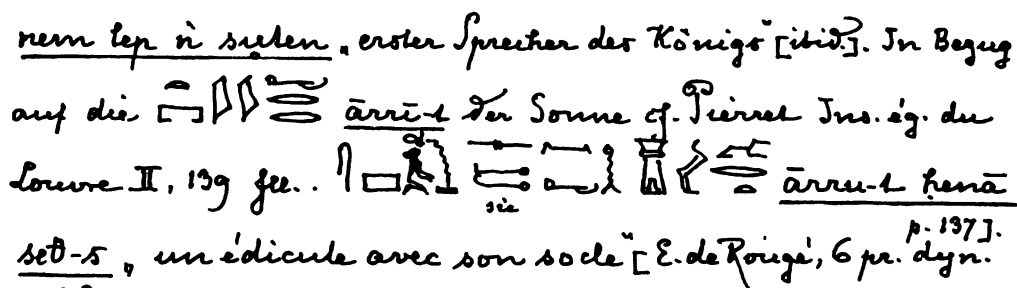 nem tep n suten „erster Sprecher des Königs“ [ibid.]. In Bezug
auf die ārrī-t der Sonne cf. Pierret Ins. ég. du
Louvre II, 139 ff..
sic
ārru-t ḥenā
p. 137].
set-s „un édicule avec son socle“ [E. de Rougé, 6 pr. dyn.